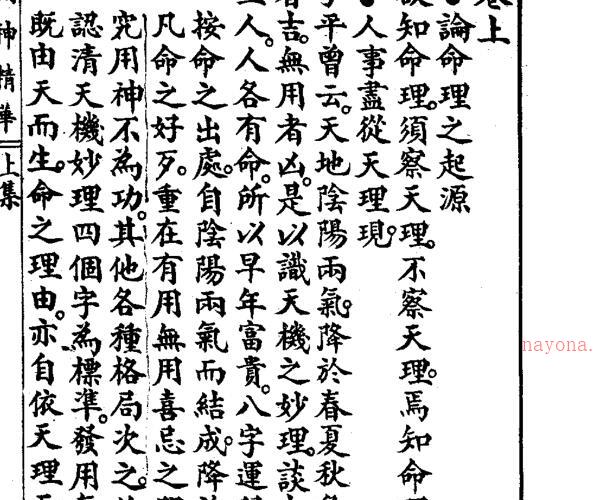 卷上
論命理之起源
欲知命理。須察天理。不察天理。焉知命
人事盡從天理現。
子平曾云。天地陰陽兩氣。降於春夏秋
者吉。無用者凶。是以識天機之妙理。談
人。人各有命。所以早年富貴。八字運
按命之出處。自陰陽兩氣而結成。降
凡命之好歹。重在有用無用喜忌之
究用神不為功。其他各種格局次之。
認清天機妙理四個字為標準。發用
既由天而生。命之理由。亦自依天理
神精華 上集
nayona.